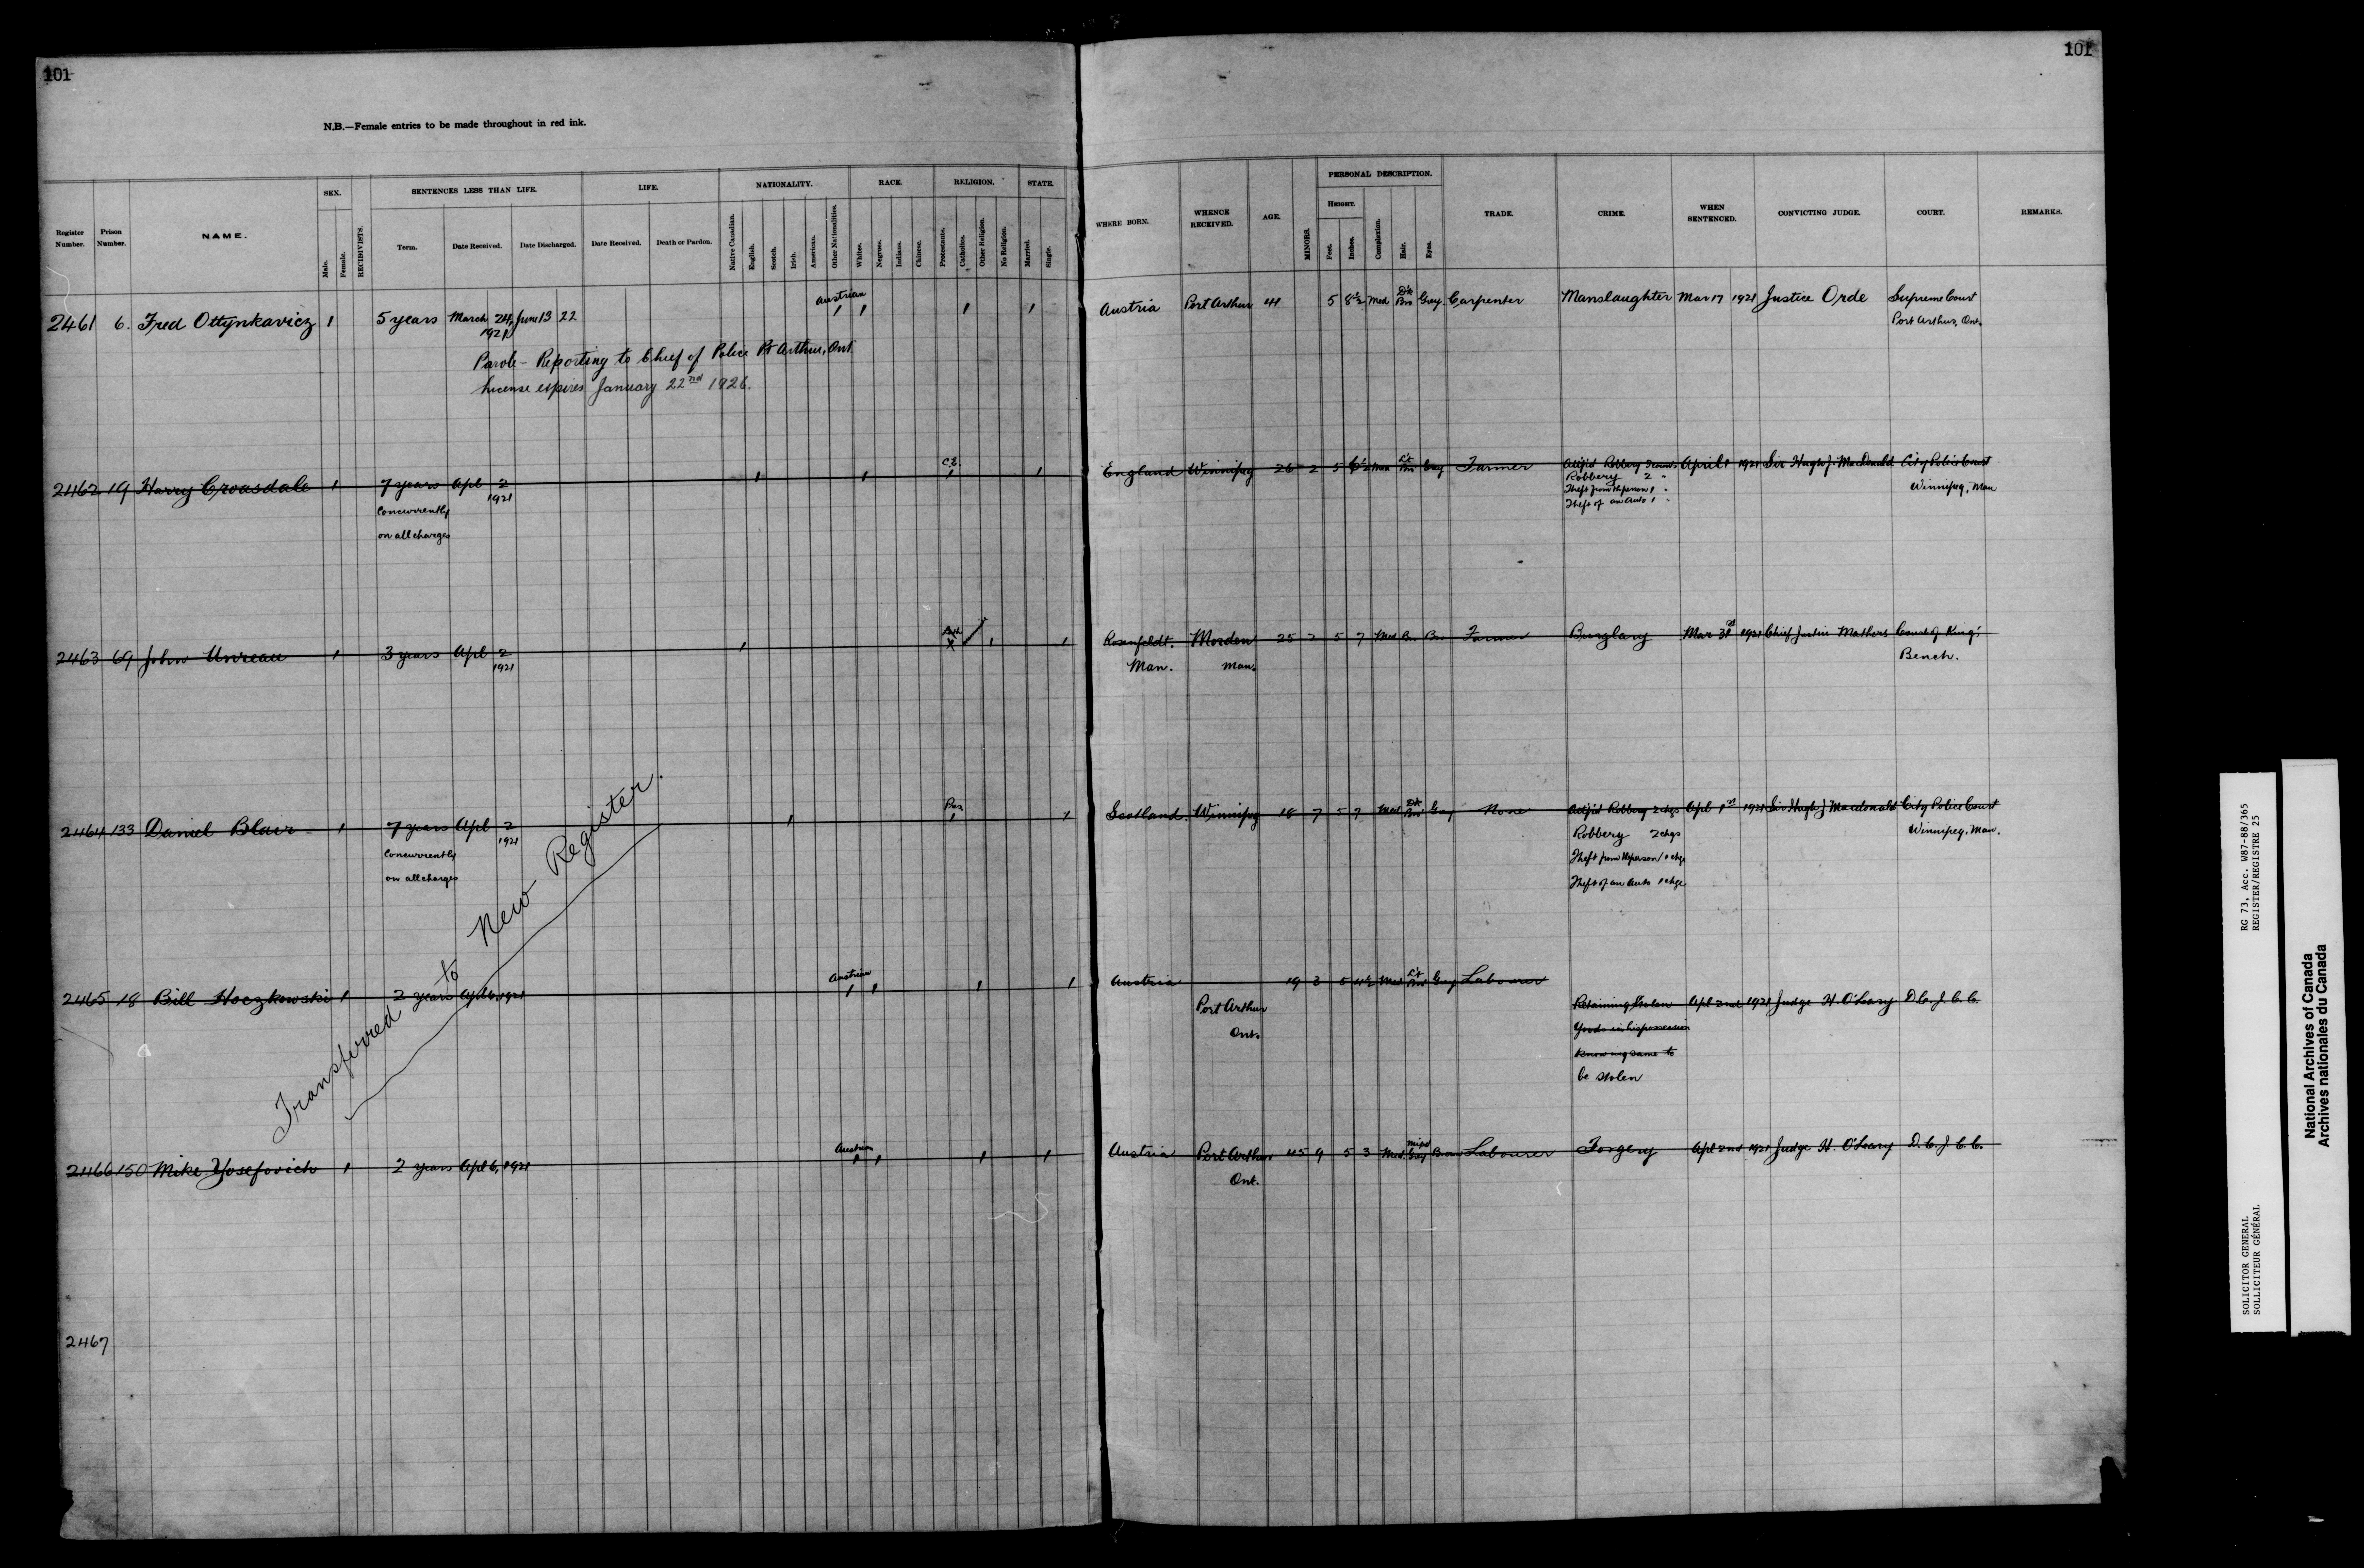 101
101
N.B.—Female entries to be made throughout in red ink.
Register Number.
Prison Number.
NAME.
SEX.
Male.
Female.
RECIDIVISTS.
SENTENCES LESS THAN LIFE.
Term.
Date Received.
Date Discharged.
LIFE.
Date Received.
Death or Pardon.
NATIONALITY.
Native Canadian.
English.
Scotch.
Irish.
American.
Other Nationalities.
RACE.
Whites.
Negroes.
Indians.
Chinese.
RELIGION.
Protestants.
Catholics.
Other Religion.
No Religion.
STATE.
Married.
Single.
WHERE BORN.
WHENCE RECEIVED.
AGE.
MINORS.
PERSONAL DESCRIPTION.
HEIGHT.
Feet.
Inches.
Complexion.
Hair.
Eyes.
TRADE.
CRIME.
WHEN SENTENCED.
CONVICTING JUDGE.
COURT.
REMARKS.
2461 6. Fred Ottynkavicz 1 5 years March 24, 1921 June 13 22 Austrian 1 1 1 1 Austria Port Arthur 41 5 8½ Med Dk Bro Gray Carpenter Manslaughter Mar 17 1921 Justice Orde Supreme Court
Port Arthur, Ont.
Parole - Reporting to Chief of Police Pt Arthur, Ont.
License expires January 22nd 1926.
2462 19 Harry Croasdale 1 7 years Apl 2 1921 1 1 C.E. 1 1 England Winnipeg 26 2 5 6½ Med Lt Bro Gray Farmer Robbery April 1 1921 Sir Hugh J. MacDonald City Police Court
Concurrently
on all charges
Robbery 2 "
Theft from th person 1 "
Theft of an Auto 1 "
Winnipeg, Man
2463 69 John Unreau 1 3 years Apl 2 1921 1 1 1 Rosenfeldt. Morden 25 2 5 7 Med Bro Bro Farmer Burglary Mar 31st 1921 Chief Justice Mathers Court of King's
Man. Man. Bench.
2464 133 Daniel Blair 1 7 years Apl 2 1921 1 Pres. 1 1 Scotland. Winnipeg 18 7 5 7 Med Dk Bro Gray None Robbery 2 chgs Apl 1st 1921 Sir Hugh J Macdonald City Police Court
Concurrently
on all charges
Robbery 2 chgs
Theft from th person 1 chge
Theft of an Auto 1 chge.
Winnipeg, Man.
Transferred to New Register.
2465 18 Bill Hoczkowski 1 2 years Apl 6, 1921 Austrian 1 1 1 1 Austria 19 3 5 4½ Med Lt Bro Gray Labourer
Port Arthur
Ont.
Retaining Stolen Apl 2nd 1921 Judge H. O'Leary D.C.J.C.C.
Goods in his possession
knowing same to
be stolen
2466 150 Mike Yosefovich 1 2 years Apl 6, 1921 Austrian 1 1 1 1 Austria Port Arthur 45 9 5 3 Med. Gray Brown Labourer Forgery Apl 2nd 1921 Judge H. O'Leary D.C.J.C.C.
Ont.
2467
RG 73, Acc. W87-88/365
REGISTER/REGISTRE 25
SOLICITOR GENERAL
SOLLICITEUR GÉNÉRAL
National Archives of Canada
Archives nationales du Canada